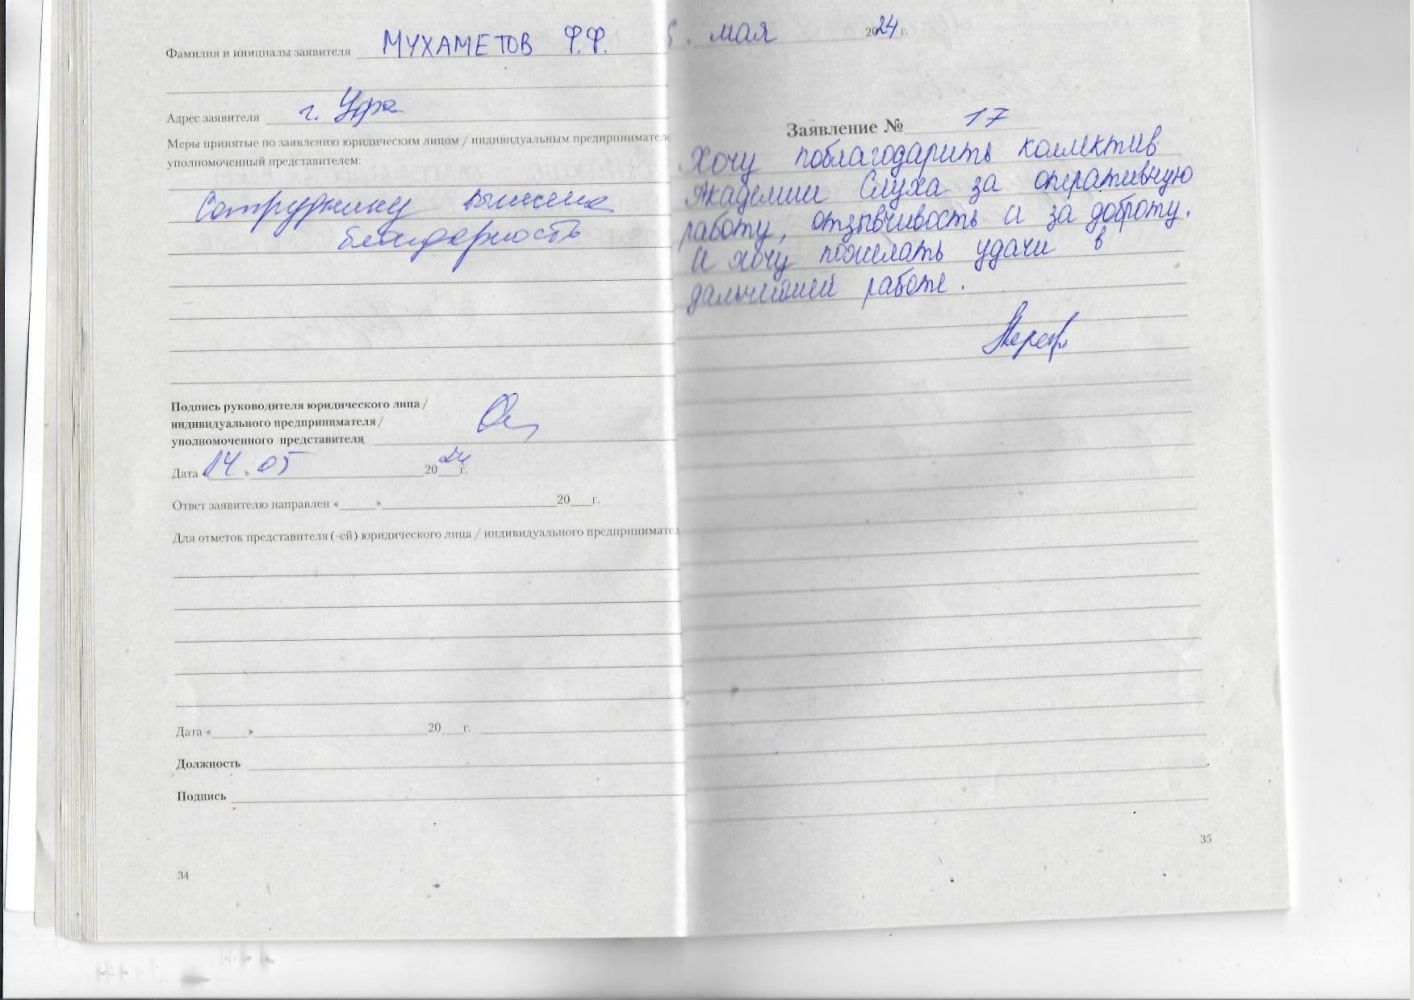 Фамилия и инициалы заявителя МУХАМЕТОВ Ф.Ф.
Адрес заявителя г. Уфа
Меры принятые по заявлению юридическим лицом / индивидуальным предпринимателе
уполномоченный представителем:
Сотруднику вынесена
благодарность
Подпись руководителя юридического лица /
индивидуального предпринимателя /
уполномоченного представителя
Дата « 14 » 05 20 24 г.
Ответ заявителю направлен « » 20 г.
Для отметок представителя (-ей) юридического лица / индивидуального предпринимател
Дата « » 20 г.
Должность
Подпись
34
мая 2024 г.
Заявление № 17
Хочу поблагодарить коллектив
Академии Слуха за оперативную
работу, отзывчивость и за доброту.
И хочу пожелать удачи в
дальнейшей работе.
35